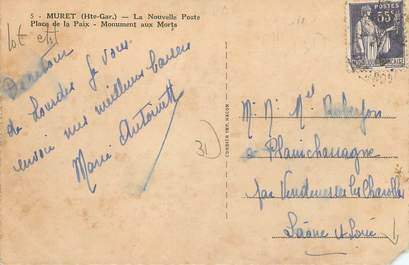 5 - MURET (Hte-Gar.) - La Nouvelle Poste
Place de la Paix - Monument aux Morts
De retour
de Lourdes je vous
envoie mes meilleurs baisers
Marie Antoinette
31
COMBIER IMP. MACON
POSTES
55c
M. Mme
à
Plainchassagne
par Vendenesse les Charolles
Saône et Loire